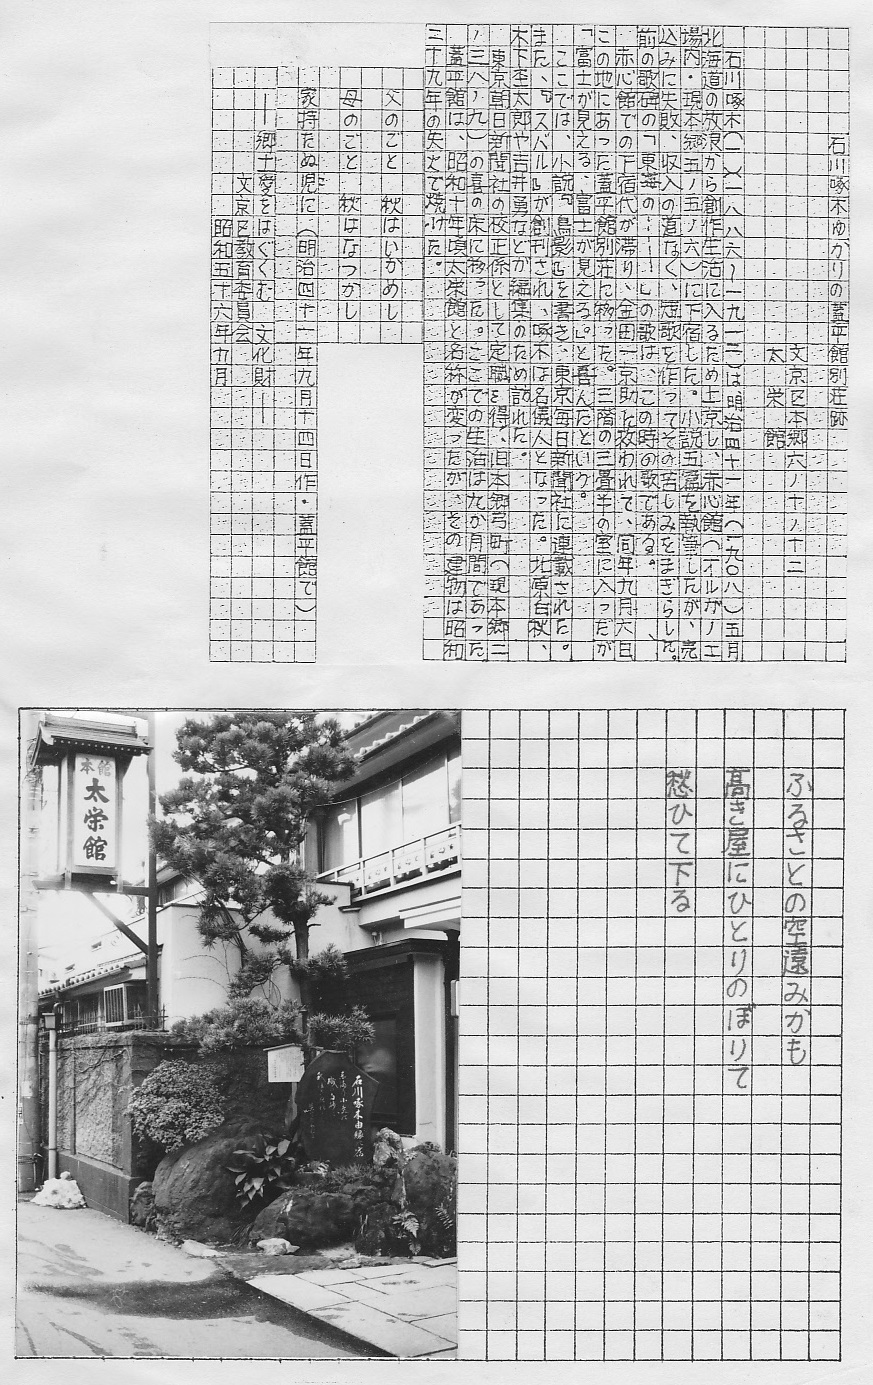 石川啄木ゆかりの蓋平館別荘跡
文京区本郷六ノ十ノ十二
太栄館
石川啄木(一八八六〜一九一二)は明治四十一年(一九〇八)五月
北海道の放浪から創作生活に入るため上京し、赤心館(オルガノ工
場内・現本郷五ノ五ノ六)に下宿した。小説五篇を執筆したが、売
込みに失敗、収入の道なく、短歌を作ってその苦しみをまぎらした。
前の歌碑の「東海の……」の歌は、この時の歌である。
赤心館での下宿代が滞り、金田一京助に救われて、同年九月六日、
この地にあった蓋平館別荘に移った。三階の三畳半の室に入ったが
「富士が見える、富士が見える。」と喜んだという。
ここでは、小説『鳥影』を書き、東京毎日新聞社に連載された。
また、『スバル』が創刊され、啄木は名儀人となった。北原白秋、
木下杢太郎や吉井勇などが編集のため訪れた。
東京朝日新聞社の校正係として定職を得、旧本郷弓町(現本郷二
ノ三八ノ九)の喜の床に移った。ここでの生活は九か月間であった。
蓋平館は、昭和十年頃太栄館と名称が変ったが、その建物は昭和
二十九年の失火で焼けた。
父のごと 秋はいかめし
母のごと 秋はなつかし
家持たぬ児に (明治四十一年九月十四日作・蓋平館で)
―郷土愛をはぐくむ 文化財―
文京区教育委員会
昭和五十六年九月
ふるさとの空遠みかも
高き屋にひとりのぼりて
愁ひて下る
本館
太栄館
石川啄木由縁之宿